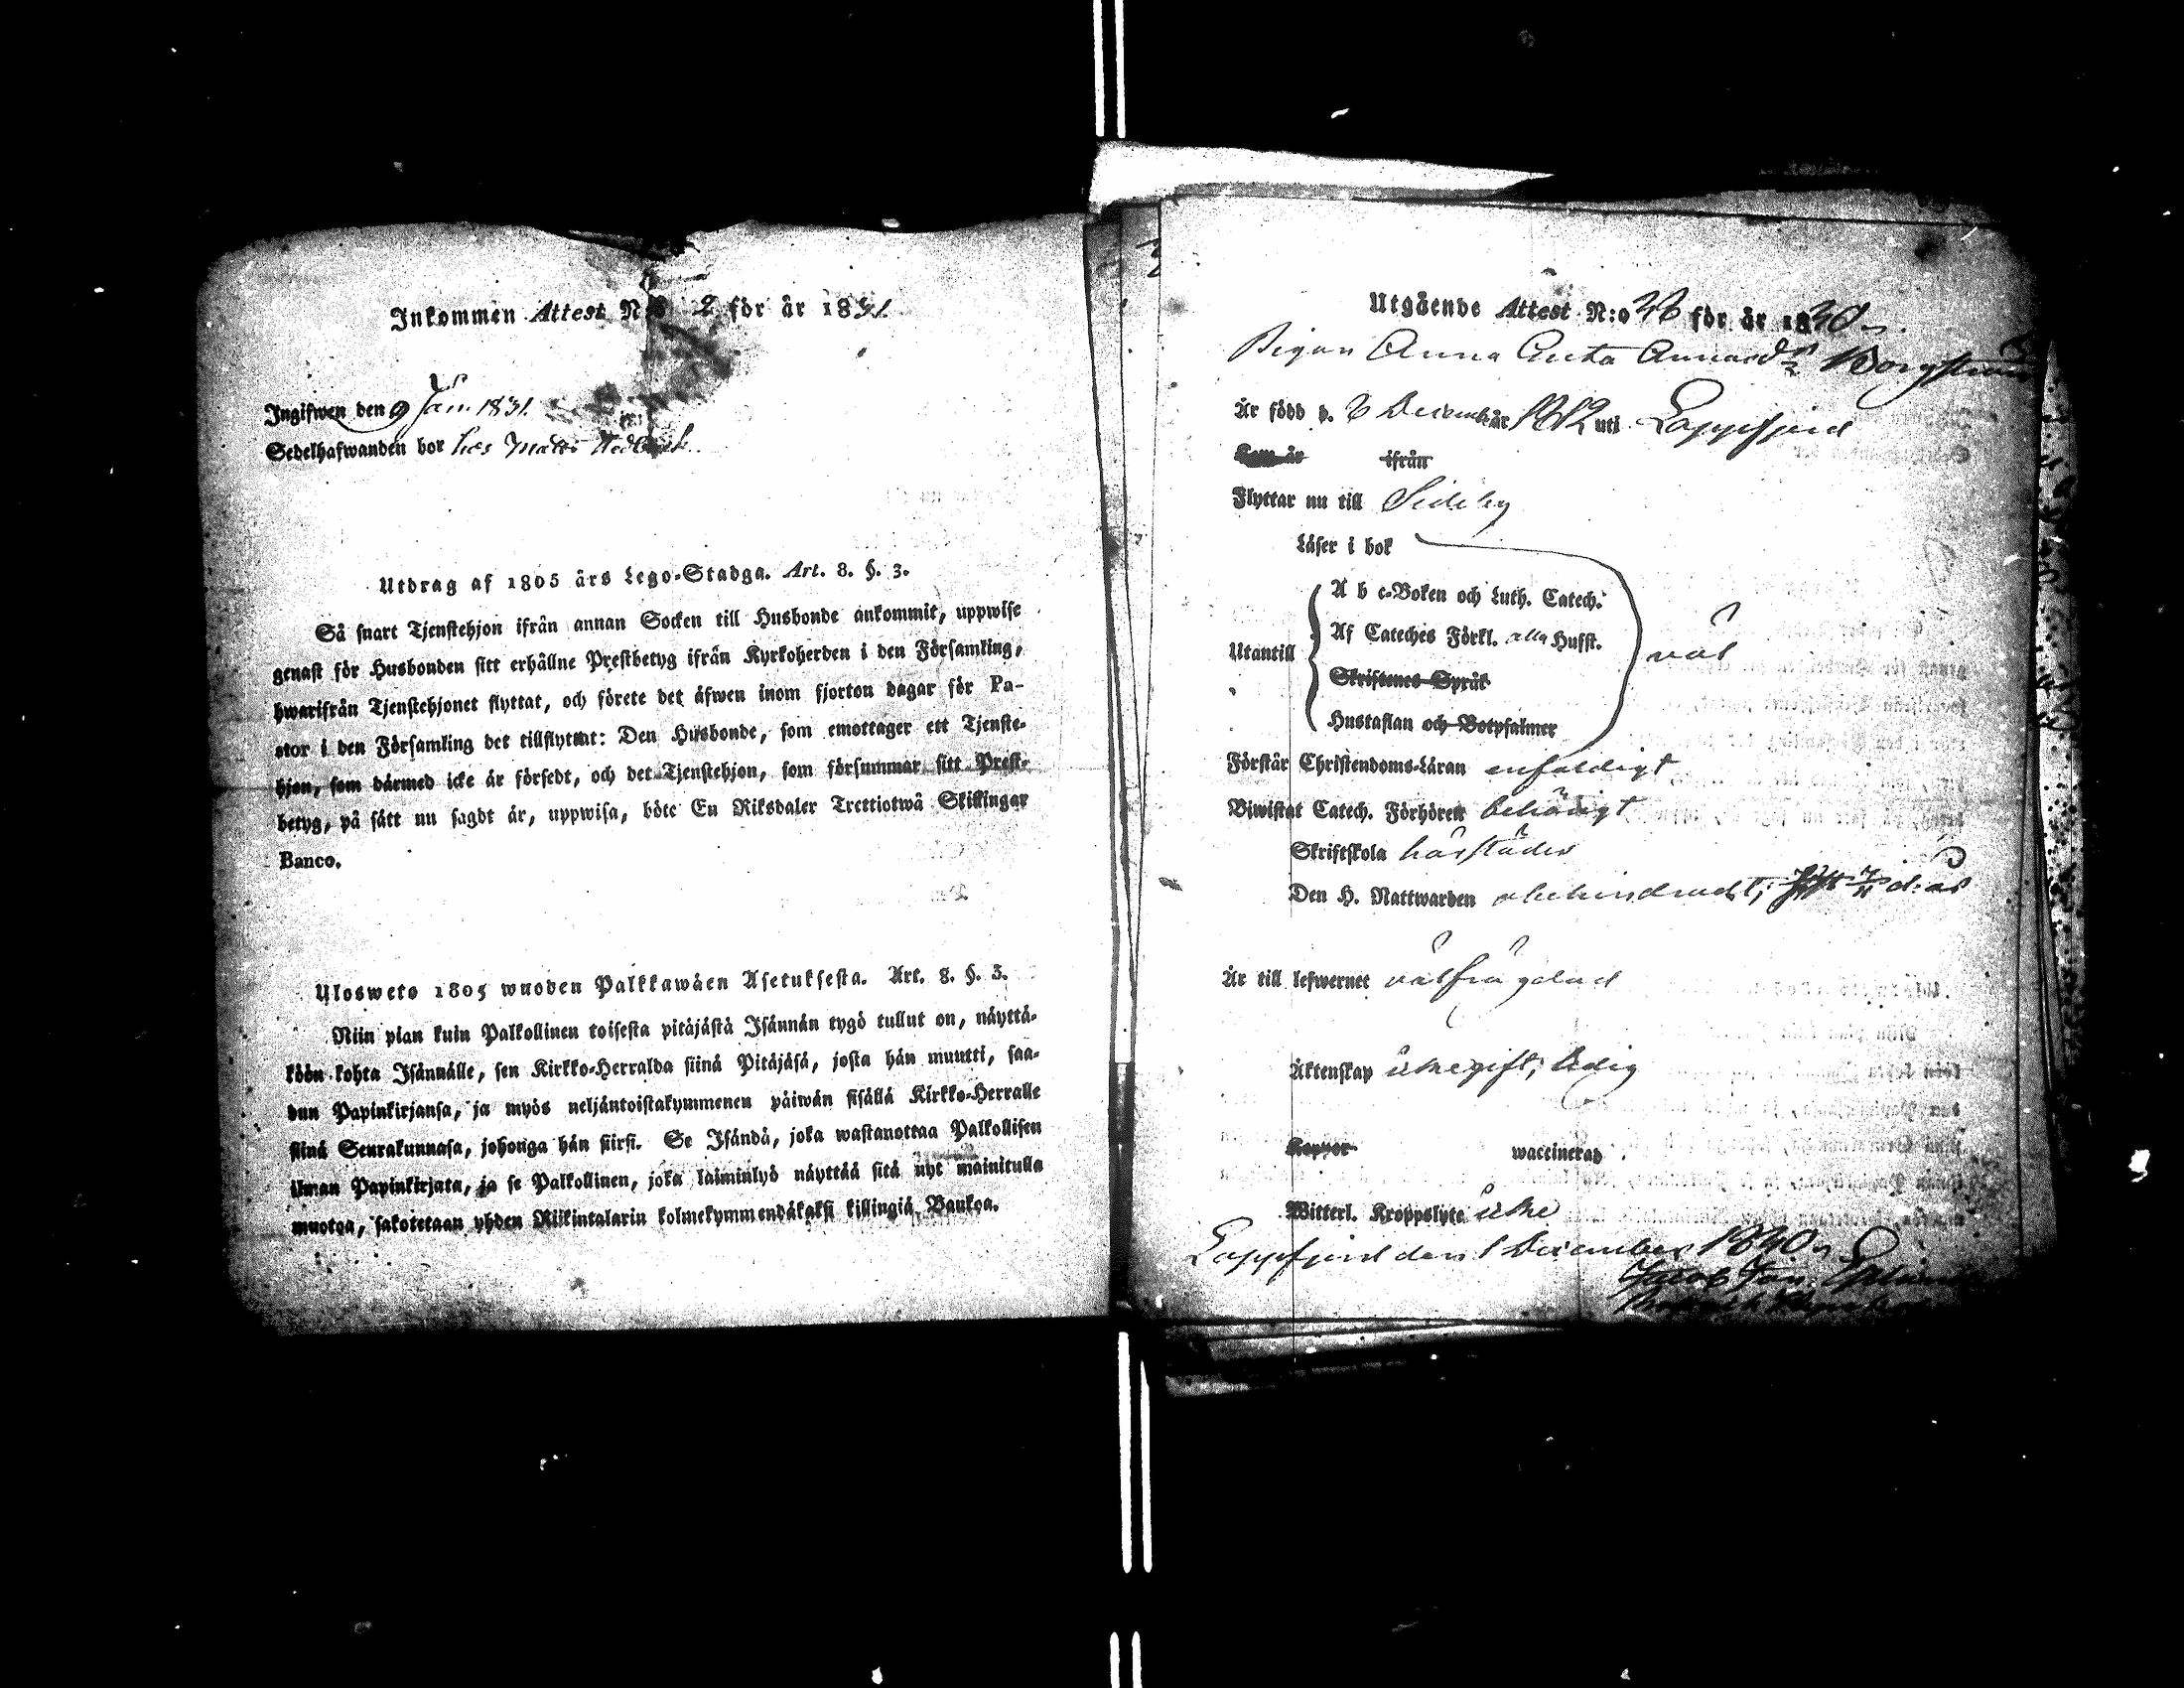 Inkommen Attest N:o 2 för år 1831.
Ingifwen den 9 Jan. 1831.
Sedelhafwanden bor hos Matts
Utdrag af 1805 års Lego-Stadga. Art. 8. §. 3.
Så snart Tjenstehjon ifrån annan Socken till Husbonde ankommit, uppwise
genast för Husbonden sitt erhållne Prestbetyg ifrån Kyrkoherden i den Församling,
hwarifrån Tjenstehjonet flyttat, och förete det äfwen inom fjorton dagar för Pa-
stor i den Församling det tillflyttat: Den Husbonde, som emottager ett Tjenste-
hjon, som därmed icke är försedt, och det Tjenstehjon, som försummar sitt Prest-
betyg, på sätt nu sagdt är, uppwisa, böte En Riksdaler Trettiotwå Skillingar
Banco.
Ulosweto 1805 wuoden Palkkawäen Asetuksesta. Art. 8. §. 3.
Niin pian kuin Palkollinen toisesta pitäjästä Isännän tygö tullut on, näyttä-
köön kohta Isännälle, sen Kirkko-Herralda siinä Pitäjäsä, josta hän muutti, saa-
dun Papinkirjansa, ja myös neljäntoistakymmenen päiwän sisällä Kirkko-Herralle
siinä Seurakunnasa, johonga hän siirsi. Se Isändä, joka wastanottaa Palkollisen
ilman Papinkirjata, ja se Palkollinen, joka laiminlyö näyttää sitä nyt mainitulla
muotoa, sakotetaan yhden Riikintalarin kolmekymmendäkaksi killingiä Bankoa.
Utgående Attest N:o 36 för år 1830.
Pigan Anna Greta Annasdr Borgström
År född d. 6 December år 1812 uti Lappfjerd
Kom år ifrån
Flyttar nu till Sideby
Läser i bok
A b c-Boken och Luth. Catech.
Af Cateches Förkl. alla Husst.
Utantill
väl
Skriftenes Språk
Hustaflan och Botpsalmer
Förstår Christendoms-Läran enfaldigt
Biwistat Catech. Förhören behörigt
Skriftskola härstädes
Den H. Nattwarden obehindradt, d: år
Är till lefwernet välfrägdad
Äktenskap icke gift, ledig
Koppor waccinerad
Witterl. Kroppslyte icke
Lappfjerd den 1 December 1830.
Jacob Jon.